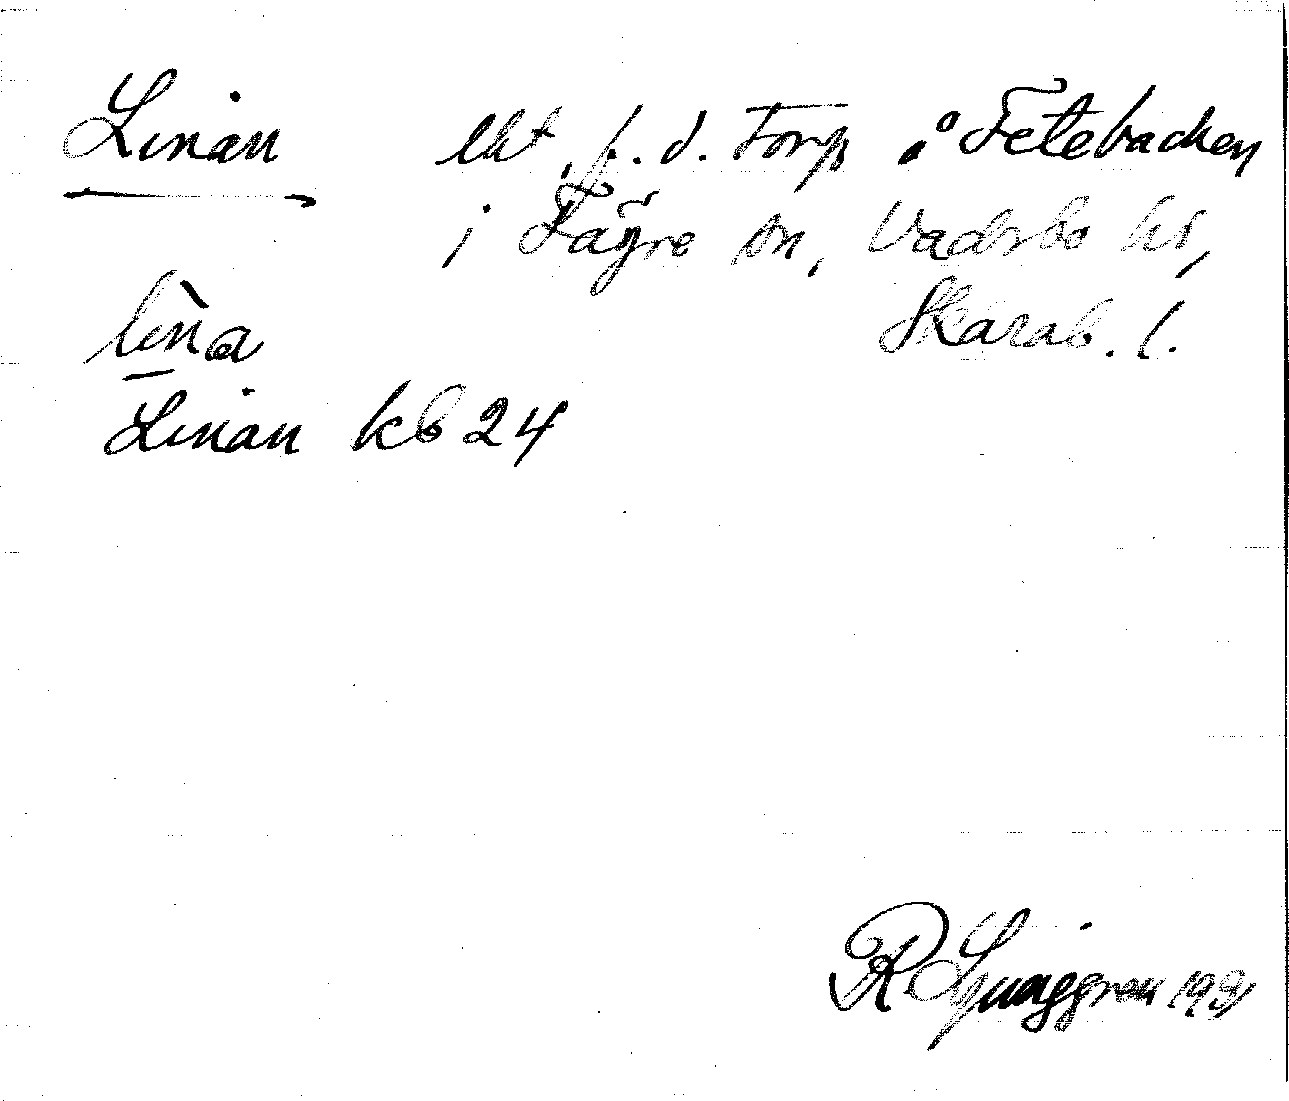 Linan lht, f. d. torp å Fetebacken
i Fägre sn, Vadsbo hd,
Skarab. l.
lìna
Linan kb 24
R Ljunggren 1931